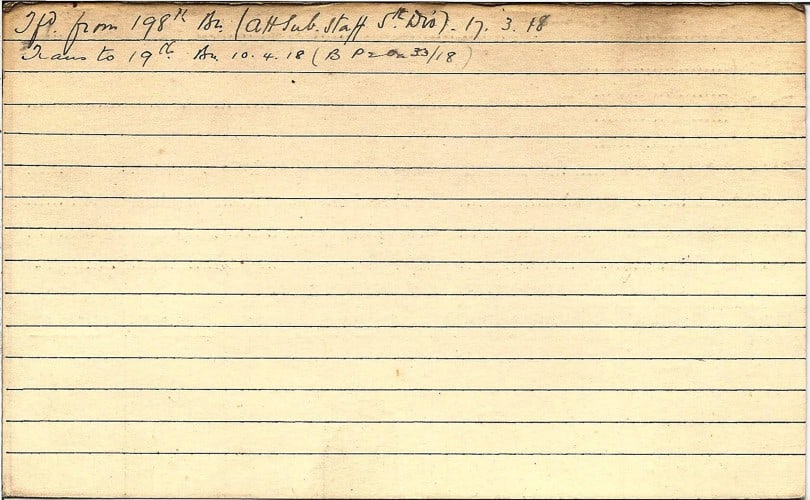 Tfd. from 198th Bn. (att Sub. Staff 5th Div). 17.3.18
Trans to 19th Bn. 10.4.18 (B P2 33/18)